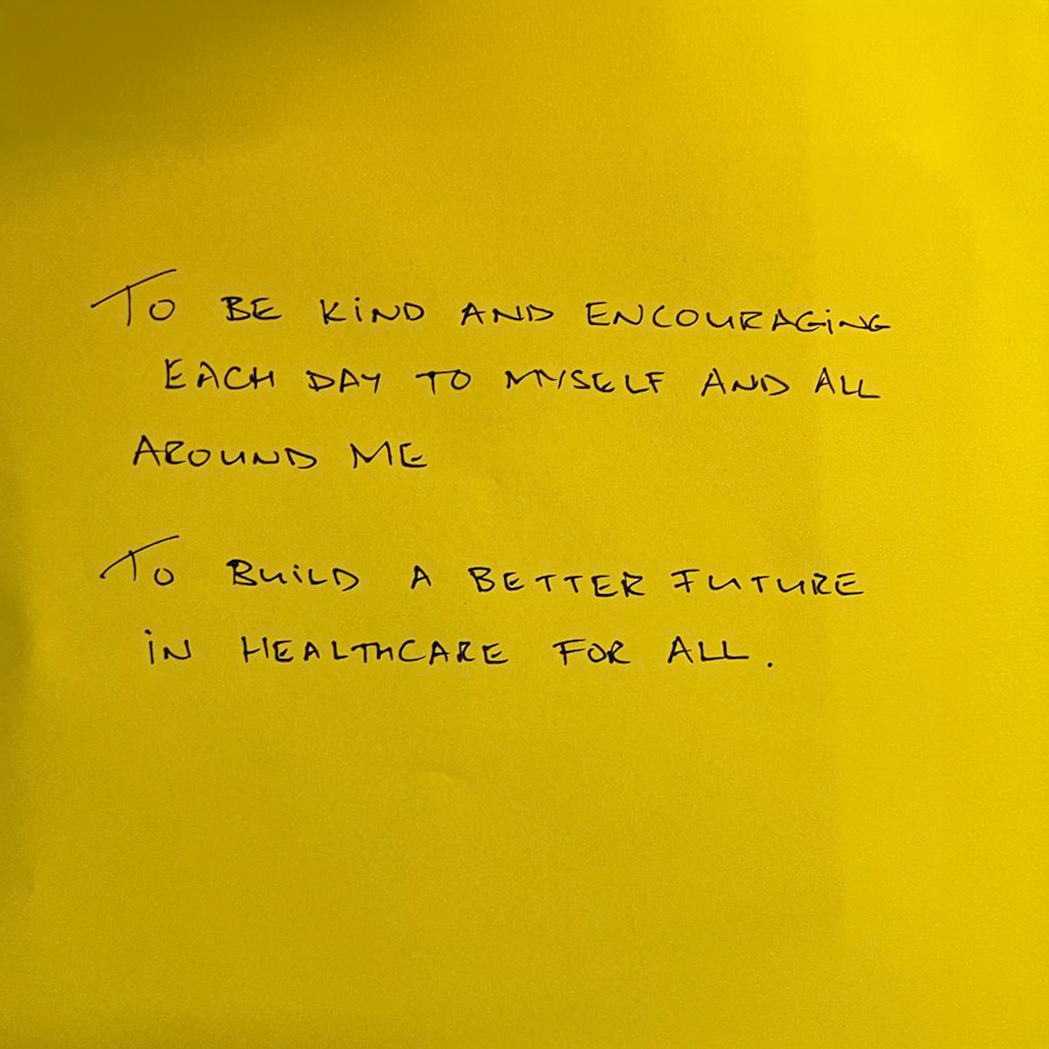 To BE KiND AND ENCOURAGiNG
EACH DAY TO MYSELF AND ALL
AROUND ME
To BUiLD A BETTER FUTURE
iN HEALTHCARE FOR ALL.